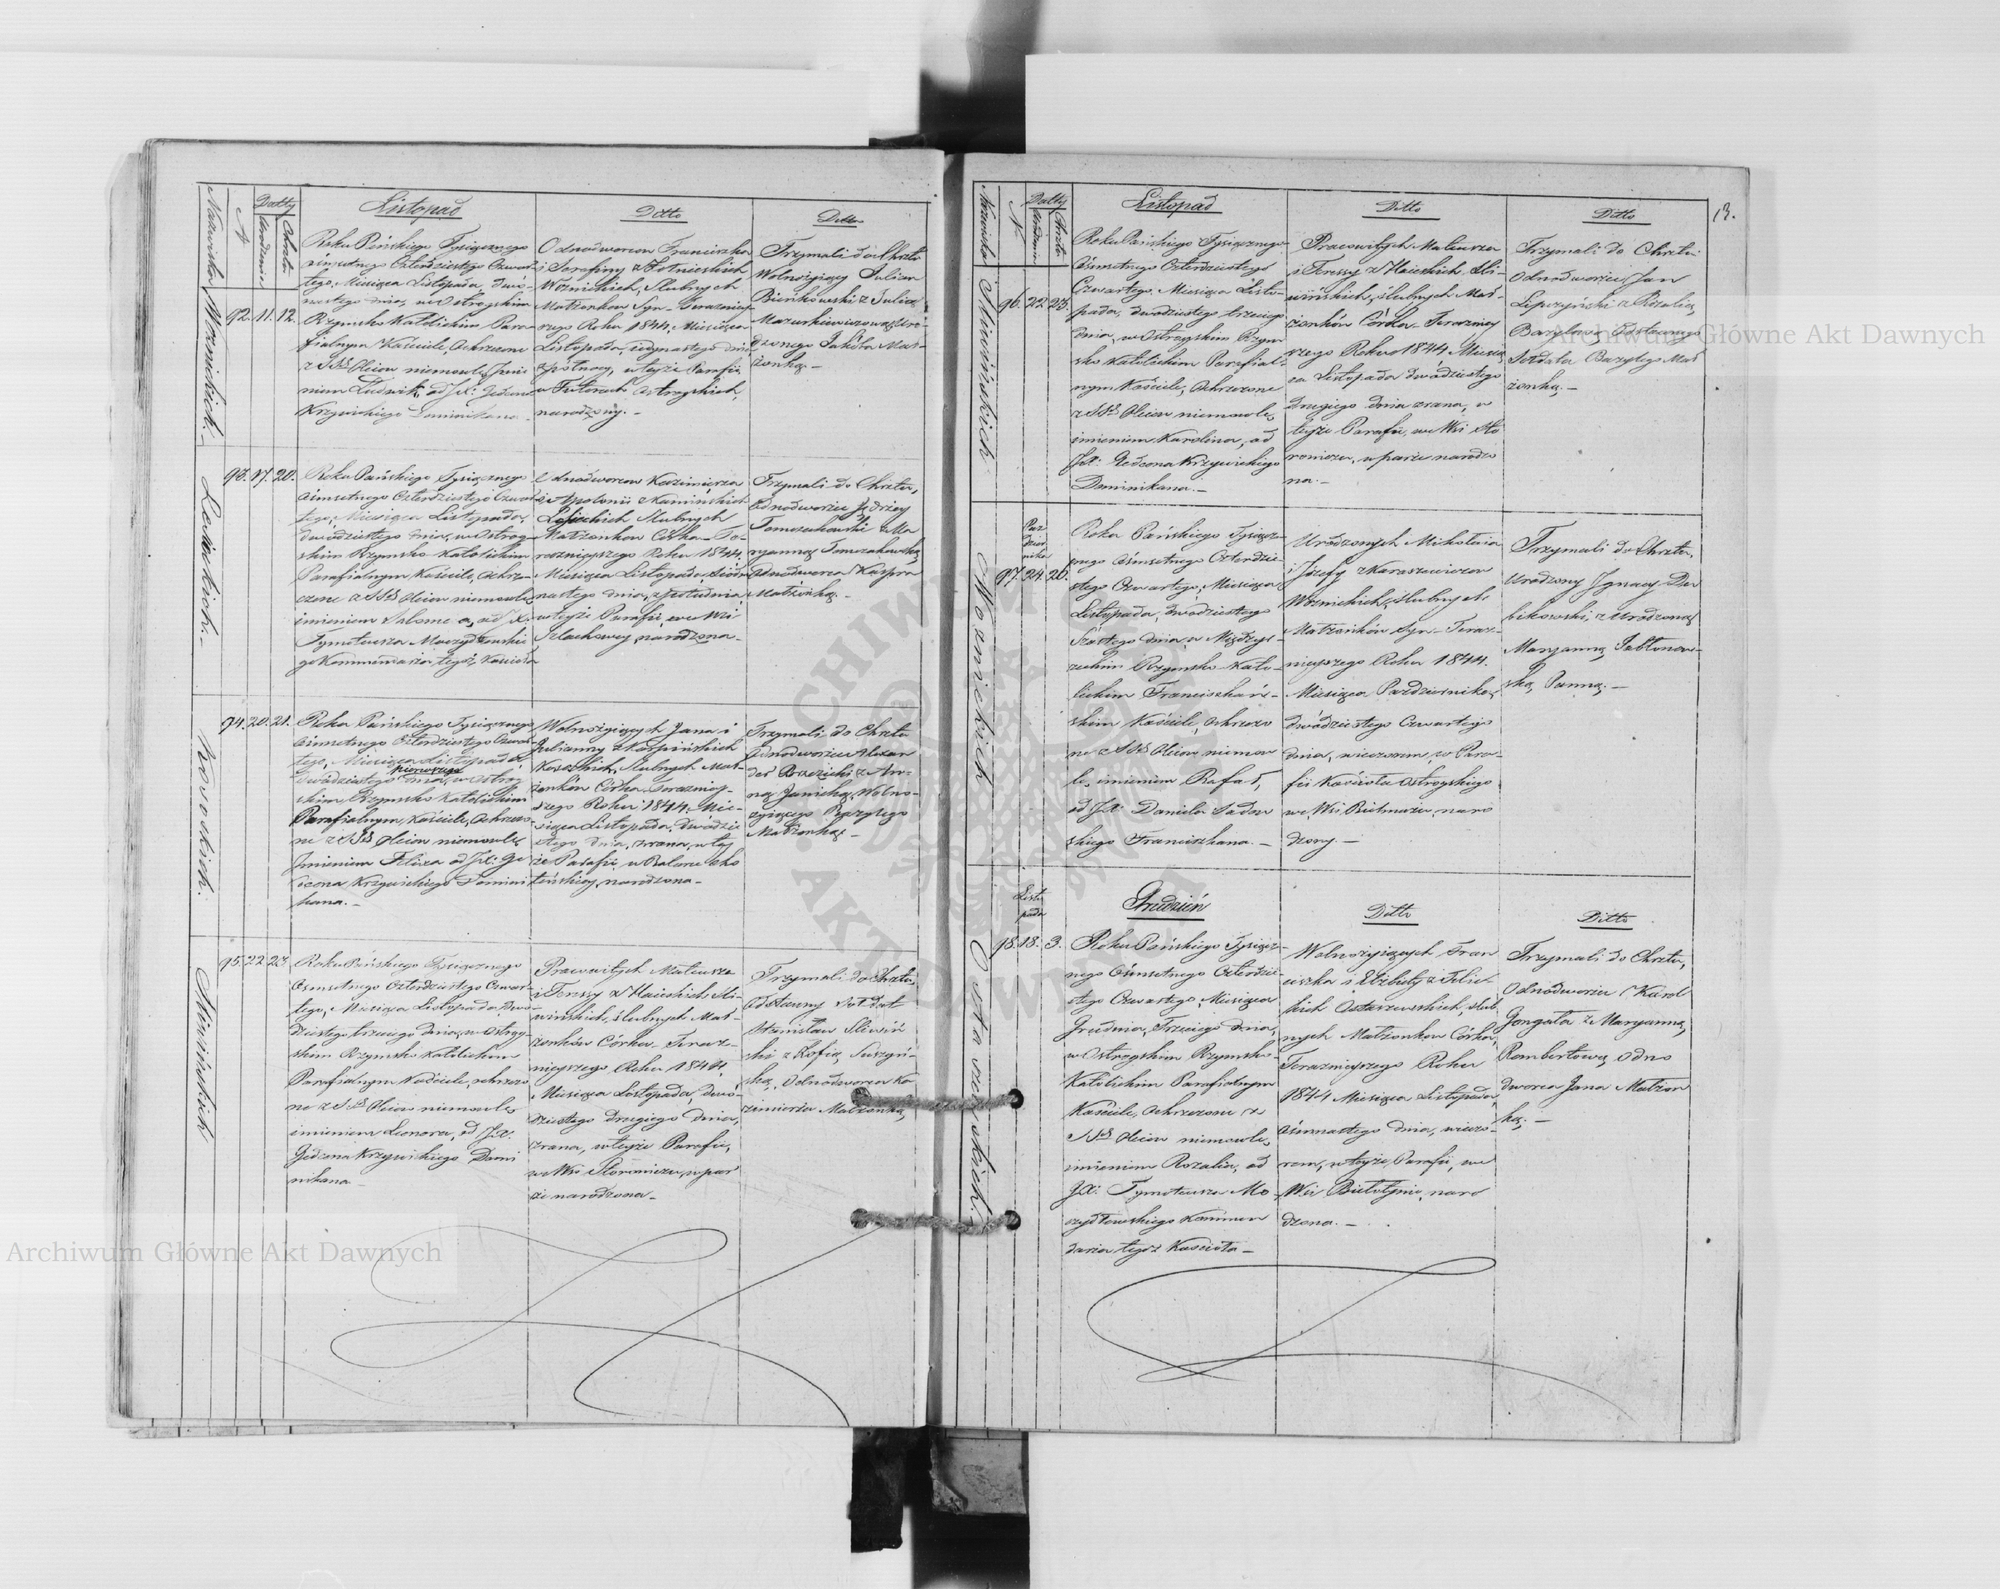 Nazwiska
N
Datty
Urodzenia
Chrztu
Listopad
Ditto
Ditto
Woznickich.
92. 11. 12.
Roku Pańskiego Tysiącznego
ósmsetnego Czterdziestego Czwar-
tego, Miesiąca Listopada, dwu-
nastego dnia, w Ostrogskim
Rzymsko Katolickim Para-
fialnym Kościele, Ochrzczone
z SSmi Oleiem niemowle, Imie-
niem Ludwik, od JX: Gedeona
Krzywickiego Dominikana
Odnodworcow Franciszka
i Serafiny z Żołnierskich
Woznickich, Slubnych
Małżonkow Syn Teraźniey-
szego Roku 1844, Miesiąca
Listopada, iedynastego dnia
z północy, w teyże Parafii,
w Futorach Ostrogskich,
narodzony. -
Trzymali do Chrztu
Wolnożyiący Julian
Bieńkowski z Julią
Mazurkiewiczową Uro-
dzonego Jakóba Mał-
żonką. -
93. 17. 20.
Roku Pańskiego Tysiącznego
ósmsetnego Czterdziestego Czwar-
tego, Miesiąca Listopada,
dwudziestego dnia, w Ostrog-
skim Rzymsko Katolickim
Parafialnym Kościele, Ochrz-
czone z SSmi Oleiem niemowle
imieniem Salomea, od JX.
Tymoteusza Moczydłowskie-
go Kommendarza tegoż Kościoła
Odnodworcow Kazimierza
i Apolonii z Kamińskich
Slubnych
Małżonkow Córka Te-
raznieyszego Roku 1844.
Miesiąca Listopada, Siódm-
nastego dnia, z południa,
w teyże Parafii, we Wsi
Szlachowey, narodzona. -
Trzymali do Chrztu,
Odnodworzec Jędrzey
Tomaszkowski z Ma-
ryanną Tomaszkowską,
Odnodworca Kaspra
Małżonką. -
94. 20. 21.
Roku Pańskiego Tysiącznego
ósmsetnego Czterdziestego Czwar-
tego, Miesiąca Listopada
dwudziestego pierwszego dnia, w Ostrog-
skim Rzymsko Katolickim
Parafialnym Kościele, Ochrzczo-
ne z SSmi Oleiem niemowle,
Imieniem Felixa od JX: Ge-
deona Krzywickiego Domini-
kana. -
Wolnożyiących Jana i
Julianny z Karpińskich
Slubnych Mał-
żonków Córka, teraźniey-
szego Roku 1844. Mie-
siąca Listopada, Dwudzie-
stego dnia, zrana, w tey-
że Parafii
narodzona. -
Trzymali do Chrztu
Odnodworzec Alexan-
der z An-
ną Janicką, Wolno-
żyiącego
Małżonką. -
Sliwińskich.
95. 22. 23.
Roku Pańskiego Tysiącznego
ósmsetnego Czterdziestego Czwar-
tego, Miesiąca Listopada Dwu-
dziestego trzeciego dnia, w Ostrog-
skim Rzymsko Katolickim
Parafialnym Kościele, ochrzczo-
ne z SSmi Oleiem niemowle
imieniem Leonora, od JX:
Gedeona Krzywickiego Domi-
nikana -
Pracowitych Mateusza
i Teressy z Haickich Sli-
wińskich, slubnych Mał-
żonków Córka Teraz-
nieyszego Roku 1844.
Miesiąca Listopada, dwu-
dziestego Drugiego dnia,
zrana, w teyże Parafii,
we Wsi Storoniczu, w par-
ze narodzona. -
Trzymali do Chrztu,
odstawny Soldat
Stanisław Sliwiń-
ski z Zofią Suszyń-
ską, Odnodworca Ka-
zimierza Małżonką,
13.
Nazwiska
N
Datty
Urodzenia
Chrztu
Listopad
Ditto
Ditto
Sliwińskich
96. 22. 23.
Roku Pańskiego Tysiącznego
ósmsetnego Czterdziestego
Czwartego, Miesiąca Listo-
pada, dwudziestego trzeciego
dnia, w Ostrogskim Rzym-
sko Katolickim Parafial-
nym Kościele, Ochrzczone
z SSmi Oleiem niemowle,
imieniem Karolina, od
JX: Gedeona Krzywickiego
Dominikana. -
Pracowitych Mateusza
i Teressy z Haickich Sli-
wińskich, slubnych Mał-
żonków Córka Teraźniey-
szego Roku 1844 Miesią-
ca Listopada dwudziestego
Drugiego dnia zrana, w
teyże Parafii, we Wsi Sto-
roniczu, w parze narodzo-
na. -
Trzymali do Chrztu
Odnodworzec Jan
z Rozalią
Odstawnego
Soldata Bazylego Mał-
żonką. -
Woznickich
Paź
dzier
nika
97. 24. 26.
Roku Pańskiego Tysiącz-
nego ósmsetnego Czterdzie-
stego Czwartego, Miesiąca
Listopada, dwudziestego
Szóstego dnia, w Międzyr-
zeckim Rzymsko Kato-
lickim Franciszkań-
skim Kościele, Ochrzczo-
ne z SSmi Oleiem, niemow-
le, imieniem Rafał,
od JX: Daniela Sadow-
skiego Franciszkana. -
Urodzonych Mikołaia
i Józefy z Karaszewiczow
Woznickich, slubnych
Małżonków Syn Teraz-
nieyszego Roku 1844.
Miesiąca Pazdziernika,
dwudziestego Czwartego
dnia, wieczorem, w Para-
fii Kościoła Ostrogskiego
we Wsi Bielmażu, naro-
dzony. -
Trzymali do Chrztu,
Urodzony Ignacy Ber-
bikowski, z Urodzoną
Maryanną Jabłonow-
ską, Panną. -
Ostaszewskich.
Listo
pada
98. 18. 3.
Grudzień
Ditto
Ditto
Roku Pańskiego Tysiącz-
nego ósmsetnego Czterdzie-
stego Czwartego Miesiąca
Grudnia, Trzeciego dnia,
w Ostrogskim Rzymsko
Katolickim Parafialnym
Kościele, Ochrzczone z
SSmi Oleiem niemowle,
imieniem Rozalia, od
JX: Tymoteusza Mo-
czydłowskiego Kommen-
darza tegoż Kościoła -
Wolnożyiących Fran-
ciszka i Elżbiety z Felic-
kich Ostaszewskich, slub-
nych Małżonkow Córka,
Teraznieyszego Roku
1844 Miesiąca Listopada,
ósmnastego dnia, wieczo-
rem, w teyże Parafii, we
Wsi Białotynie, naro-
dzona. -
Trzymali do Chrztu,
Odnodworzec Karol
Gongała z Maryanną
Rembertową Odno-
dworca Jana Małżon-
ką. -
Archiwum Główne Akt Dawnych
Archiwum Główne Akt Dawnych